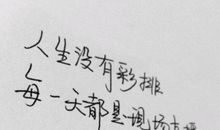 人生没有彩排
每一天都是现场